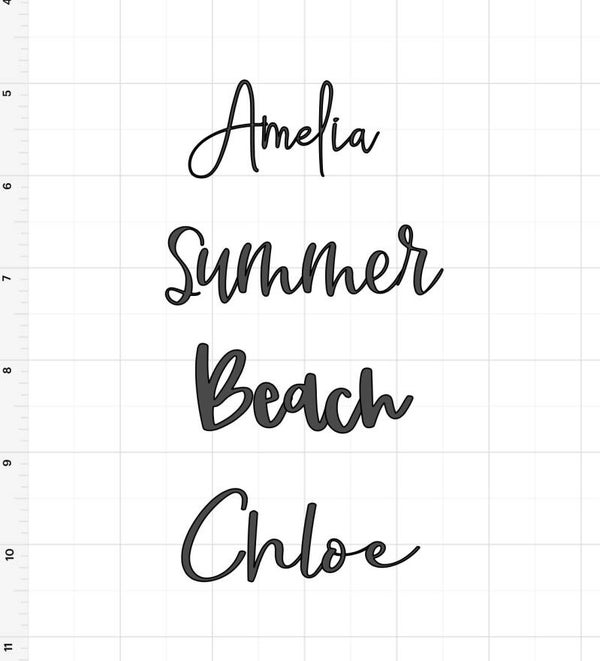 4
5
Amelia
6
Summer
7
8
Beach
9
Chloe
10
11